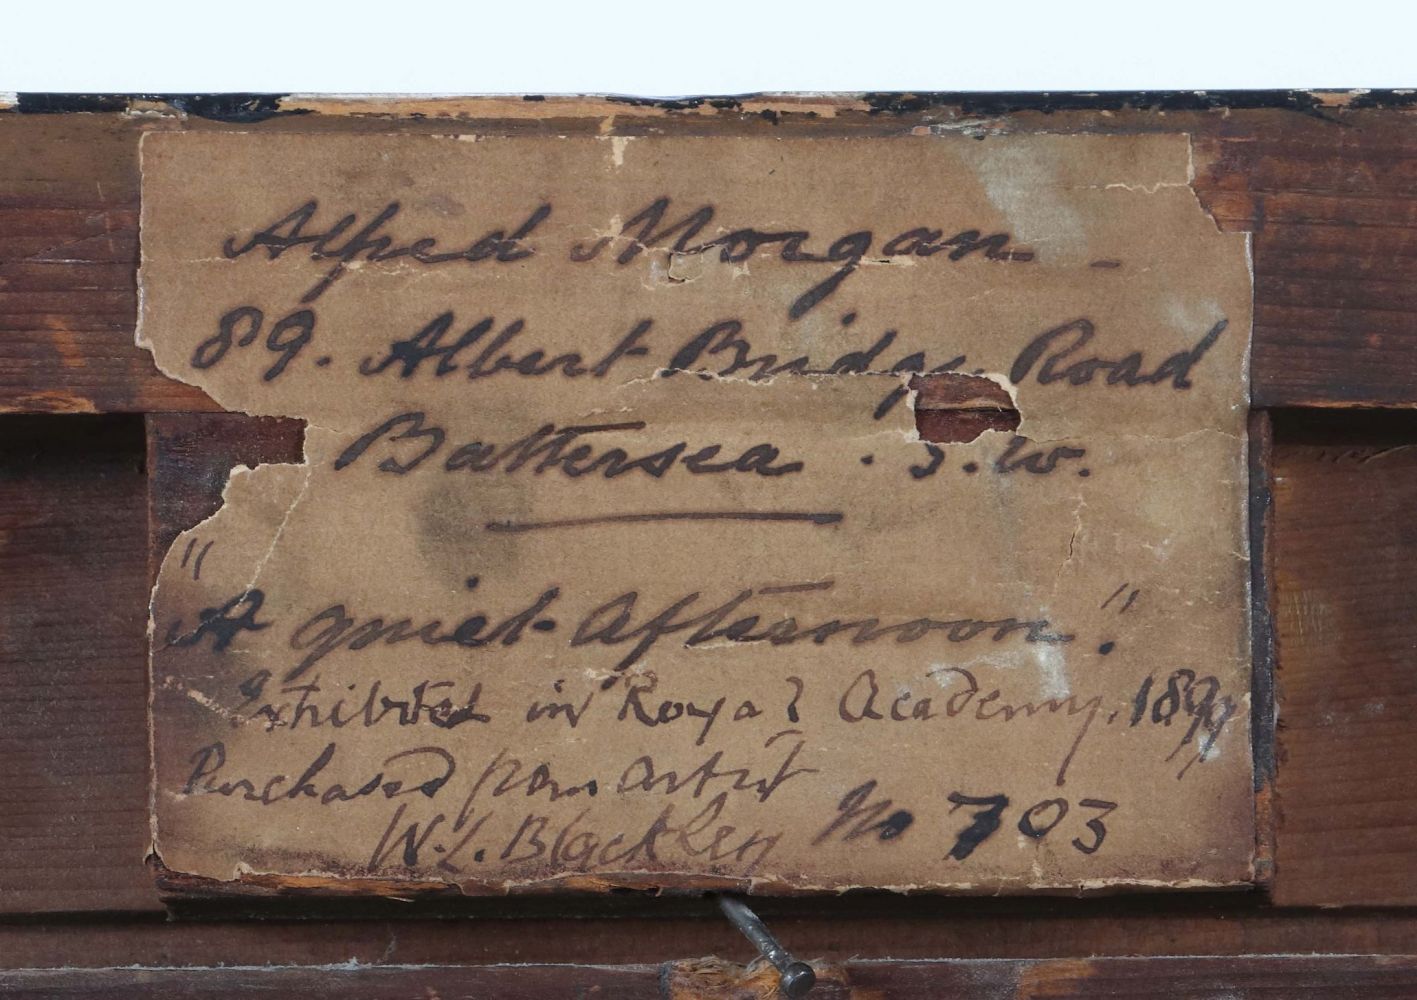 Alfred Morgan -
89. Albert Bridge Road
Battersea . S. W.
"A quiet Afternoon".
Exhibited in Royal Academy. 1899
Purchased from artist
W. L. Blackley No 703